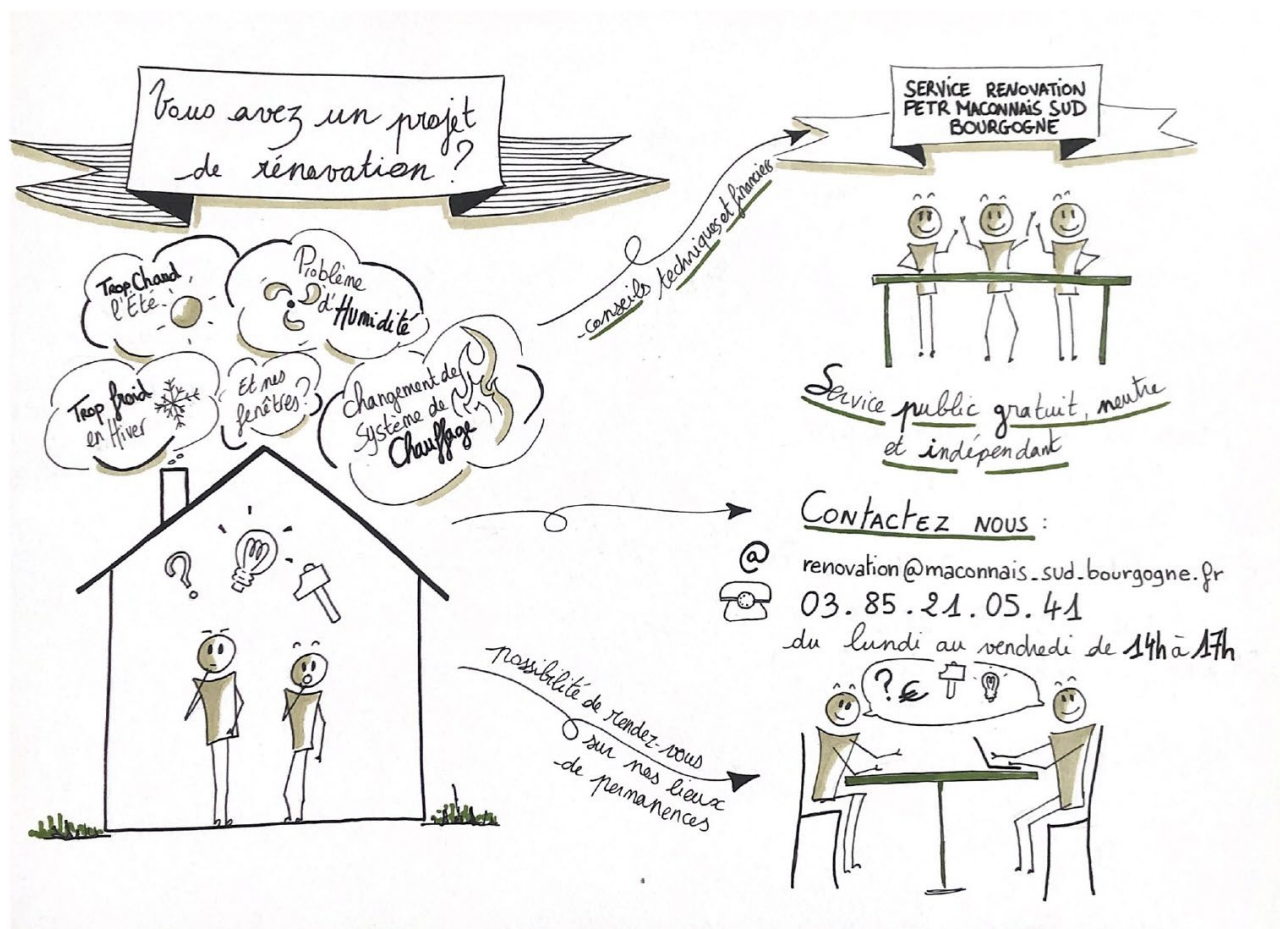 Vous avez un projet
de rénovation ?
Trop Chaud
l'Eté
Problème
d'Humidité
Trop froid
en Hiver
Et nos
fenêtres ?
Changement de
Système de
Chauffage
?
conseils techniques et financiers
SERVICE RENOVATION
PETR MACONNAIS SUD
BOURGOGNE
Service public gratuit, neutre
et indépendant
CONTACTEZ NOUS :
@ renovation@maconnais_sud_bourgogne.fr
03.85.21.05.41
du lundi au vendredi de 14h à 17h
possibilité de rendez-vous
sur nos lieux
de permanences
? €